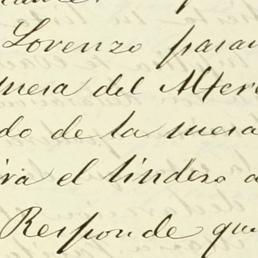 Lorenzo para
mesa del Alfer
do de la mesa
va el lindero a
Responde que